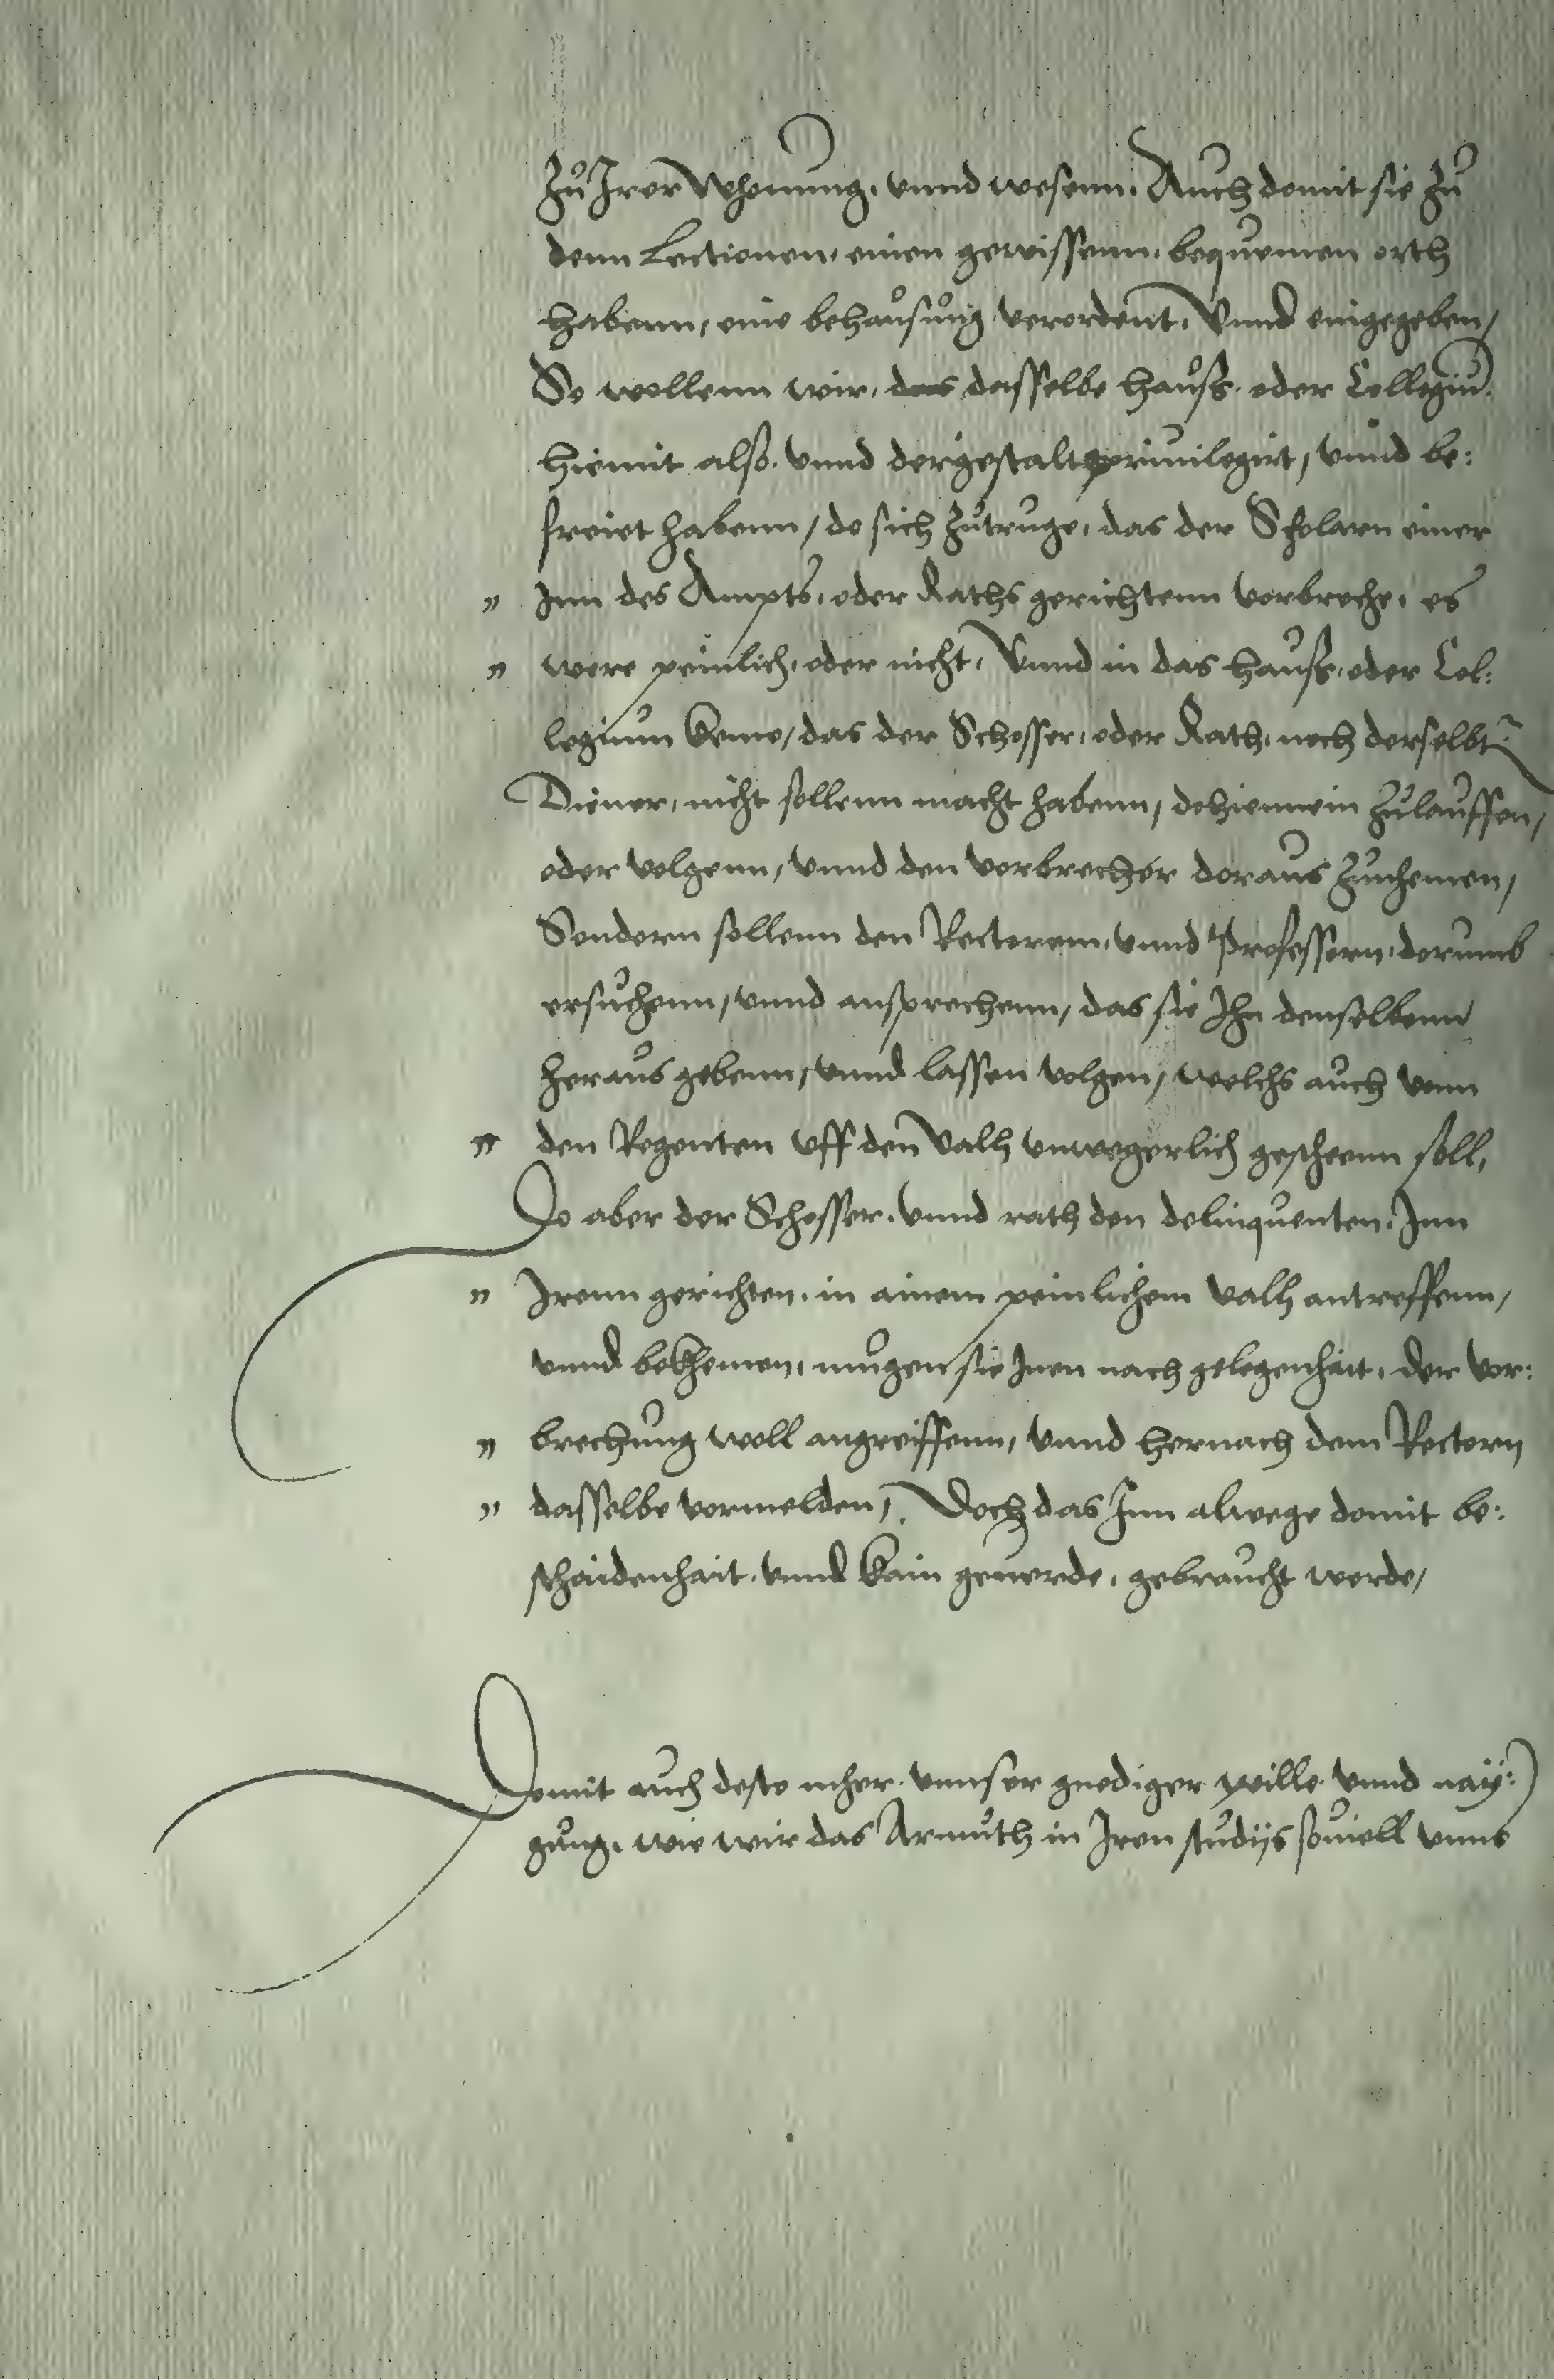 Zu Irer Whonung, vnnd wesenn, Auch domit sie zu
denn Lectionen, einen gewissenn, bequemen orth
habenn, eine behausung verordent, Vnnd eingegeben,
So wollenn wir, das dasselbe hauß, oder Collegiu
hiemit also, vnnd dergestalt priuilegirt, vnnd be:
freiet habenn, do sich zutruge, das der Scholarn einer
" Inn des Ampts, oder Raths gerichtenn vorbreche, es
" were peinlich, oder nicht, Vnnd in das hauß, oder Col:
legium keme, das der Schosser, oder Rath, noch derselbt
Diener, nicht sollenn macht habenn, dohienein zulauffen,
oder volgenn, vnnd den vorbrecher doraus zunhemen,
Sondern sollenn den Rectorem, vnnd Professorn, dorumb
ersuchenn, vnnd ansprechenn, das sie Ihn denselbenn
heraus gebenn, vnnd lassen volgen, welchs auch vonn
" den Regenten vff den Valh vnwegerlich gescheenn soll,
Do aber der Schosser, vnnd rath den delinquenten, Inn
" Irenn gerichten, in ainem peinlichem Valh antreffenn,
vnnd bekhemen, mugen sie Inen nach gelegenhait, der vor:
" brechung woll angreiffenn, vnnd hernach dem Rectorn
" dasselbe vormelden, Doch das Inn alwege domit be:
schaidenhait, vnnd kain geuerde, gebraucht werde,
Domit auch desto mher, vnnser gnediger wille, vnnd nay:
gung, wie wir das Armuth in Iren studijs souiell vnns